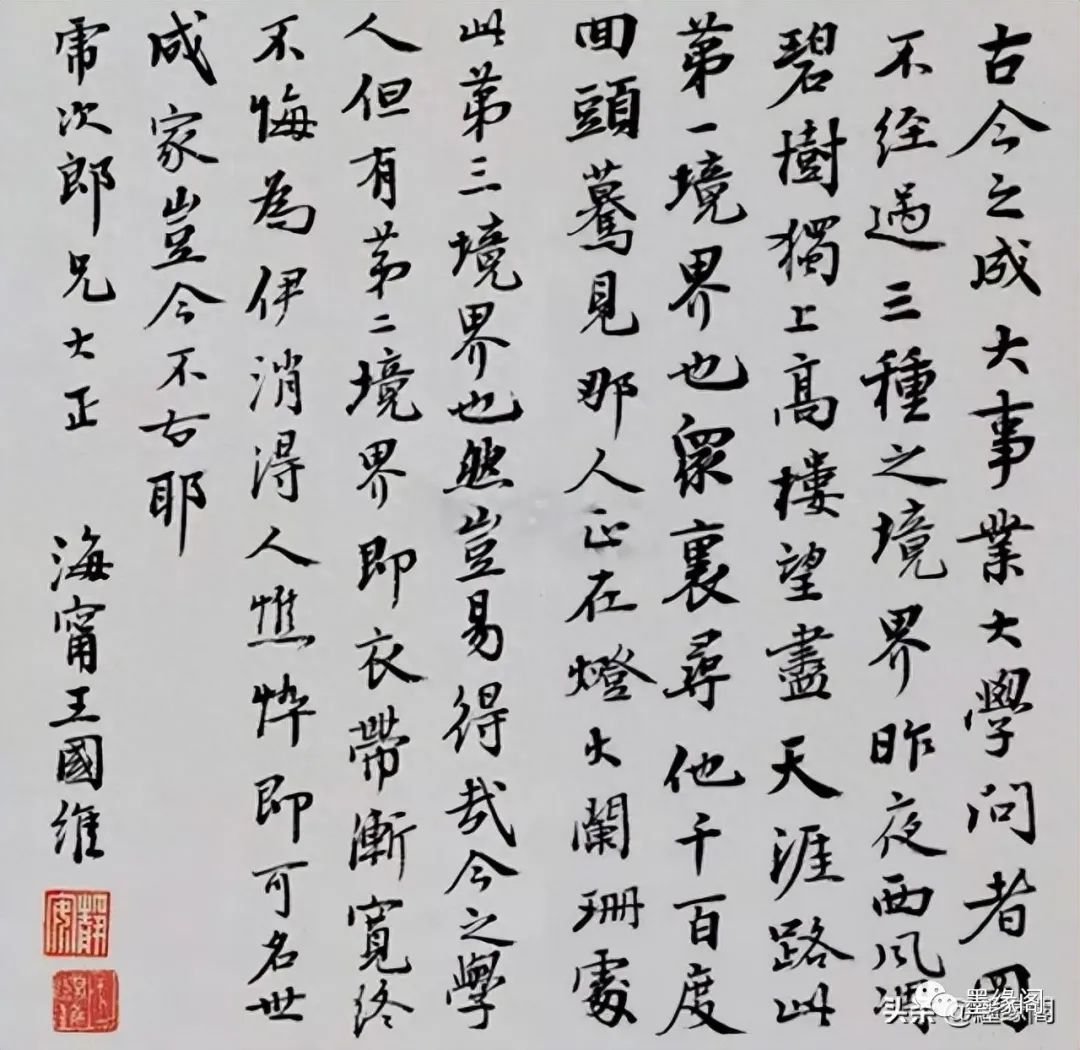 古今之成大事業大學問者罔
不经過三種之境界昨夜西风凋
碧樹獨上高樓望盡天涯路此
第一境界也眾裏尋他千百度
回頭驀見那人正在燈火闌珊處
此第三境界也然豈易得哉今之學
人但有第二境界即衣帶漸寬终
不悔為伊消得人憔悴即可名世
成家豈今不古耶
次郎兄大正
海甯王國維
靜安
墨缘阁
头条@墨缘阁